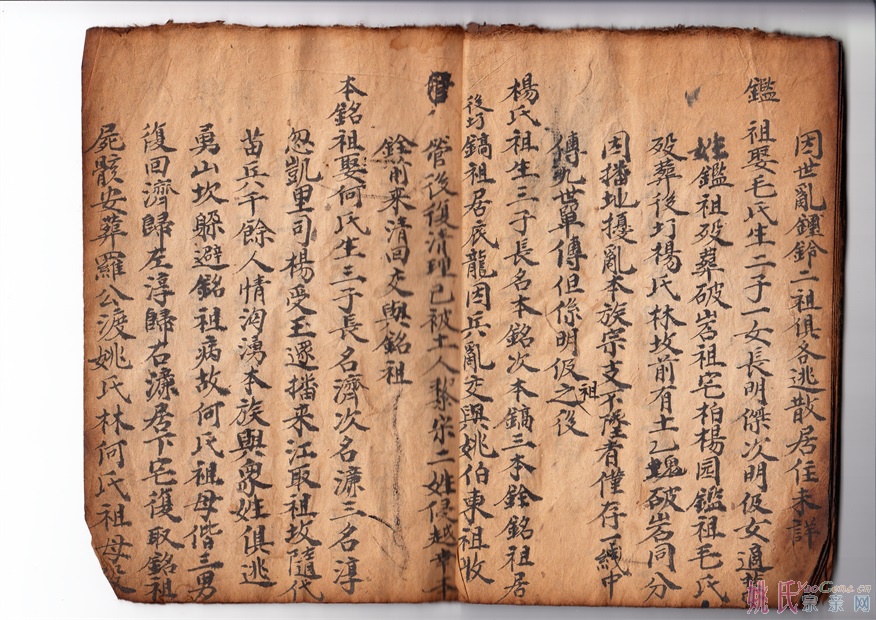 因世亂鑼鈴二祖俱各逃散居住未詳
鑑祖娶毛氏生二子一女長明傑次明伋女適
姓鑑祖殁葬破岩祖宅柏楊园鑑祖毛氏
殁葬後圢楊氏林坟前有土乙塊破岩同分
因播地擾亂本族宗支不墜者僅存一綫中
傳九世單傳但係明伋之祖後
楊氏祖生三子長名本銘次本鎬三本銓銘祖居
後圢鎬祖居辰龍因兵亂交與姚伯東祖收
管後復清理已被土人黎宋二姓侵越
銓前來清回交與銘祖
本銘祖娶何氏生三子長名濟次名濂三名淳
忽凱里司楊受王逐播來江取祖坟隨代
苗兵千餘人情洶湧本族與衆姓俱逃
勇山坎躲避銘祖病故何氏祖母偕三男
復回濟歸左淳歸右濂居下宅復取銘祖
屍骸安葬羅公渡姚氏林何氏祖母
姚氏宗親网
YaoGens.cn